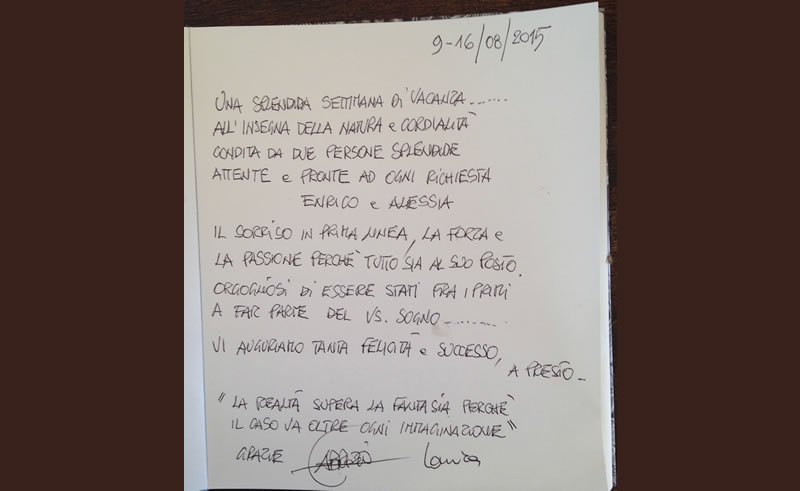 9-16/08/2015
UNA SPLENDIDA SETTIMANA Di VACANZA.......
ALL'INSEGNA DELLA NATURA e CORDIALITÀ
CONDITA DA DUE PERSONE SPLENDIDE
ATTENTE e PRONTE AD OGNI RICHIESTA
ENRICO e ALESSIA
IL SORRISO IN PRIMA LINEA, LA FORZA e
LA PASSIONE PERCHÈ TUTTO SIA AL SUO POSTO.
ORGOGLIOSI Di ESSERE STATI FRA I PRIMI
A FAR PARTE DEL VS. SOGNO.........
VI AUGURIAMO TANTA FELICITÀ e SUCCESSO,
A PRESTO-
"LA REALTÀ SUPERA LA FANTASIA PERCHÈ
IL CASO VA OLTRE OGNI IMMAGINAZIONE"
GRAZIE